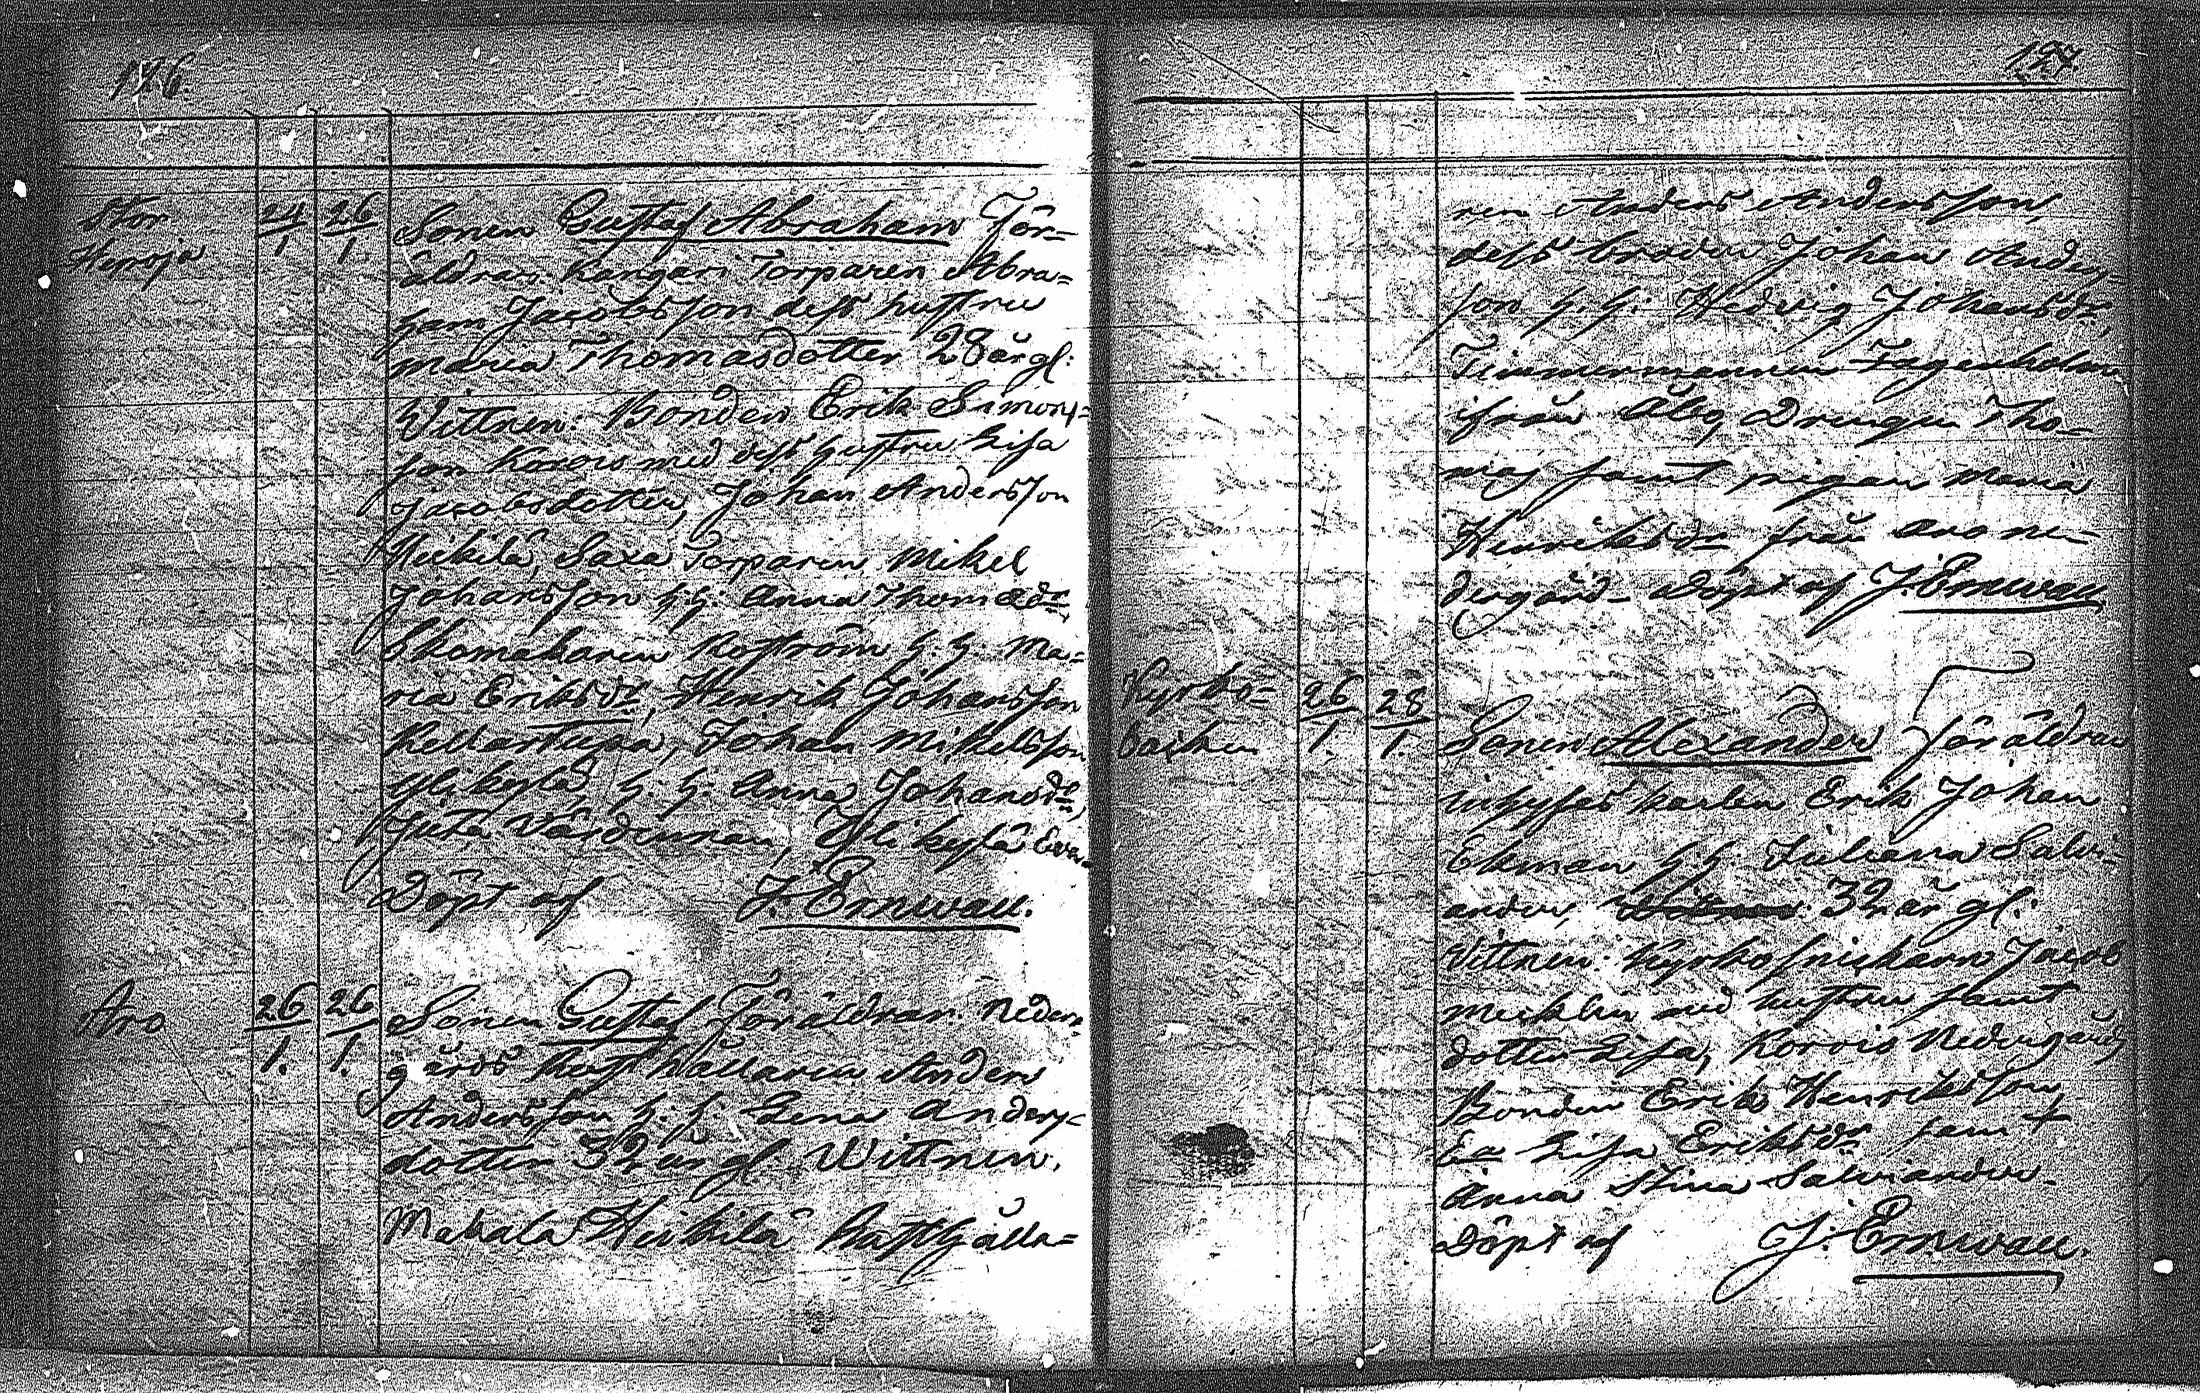 126.
Stor
Heroja
24 26
1 1.
Sonen Gustaf Abraham För-
äldrar. Kangari Torparen Abra=
ham Jacobsson dess hustru
Maria Thomasdotter 28 år gl:
Vittnen: Bonden Erik Simons=
son Korois med dess hustru Lisa
Jacobsdotter, Johan Andersson
Heikilä, Saxa Torparen Mikel
Johansson h: h: Anna Thomasdr,
Skomakaren Roström h. h. Ma=
ria Eriksdr, Henrik Johansson
Kellarstupa, Johan Mikelsson
Ylikylä, h: h: Anna Johansdr,
Juta Värdinnan, Ylikylä
Döpt af J: Ernwall.
Aro
26 26
1. 1.
Sonen Gustaf Föräldrar. Neder-
gårds Rusthållaren Anders
Andersson h: h: Lena Anders-
dotter 32 år gl. Wittnen.
Makala Heikilä Rusthålla=
127
ren Anders Andersson,
dess broder Johan Anders-
son h. h: Hedvig Johansdr,
Timmermannen Fagerholm
ifrån Åbo, Drengen Tho-
mas samt pigan Maria
Henriksdr från Aro ne-
dergård. Döpt af J. Ernwall
Kyrko=
backen
26 28
1. 1.
Sonen Alexander Föräldrar
Erik Johan
Ekman h h: Juliana Salvi-
ander, 32 år gl:
Vittnen: Kyrko snickaren Jacob
Mecklin med hustru samt
dotter Lisa, Korvis Nedergårds
Bonden Erik Henriksson
Ea Lisa Eriksdr samt
Anna Stina Salviander.
Döpt af J: Ernwall.